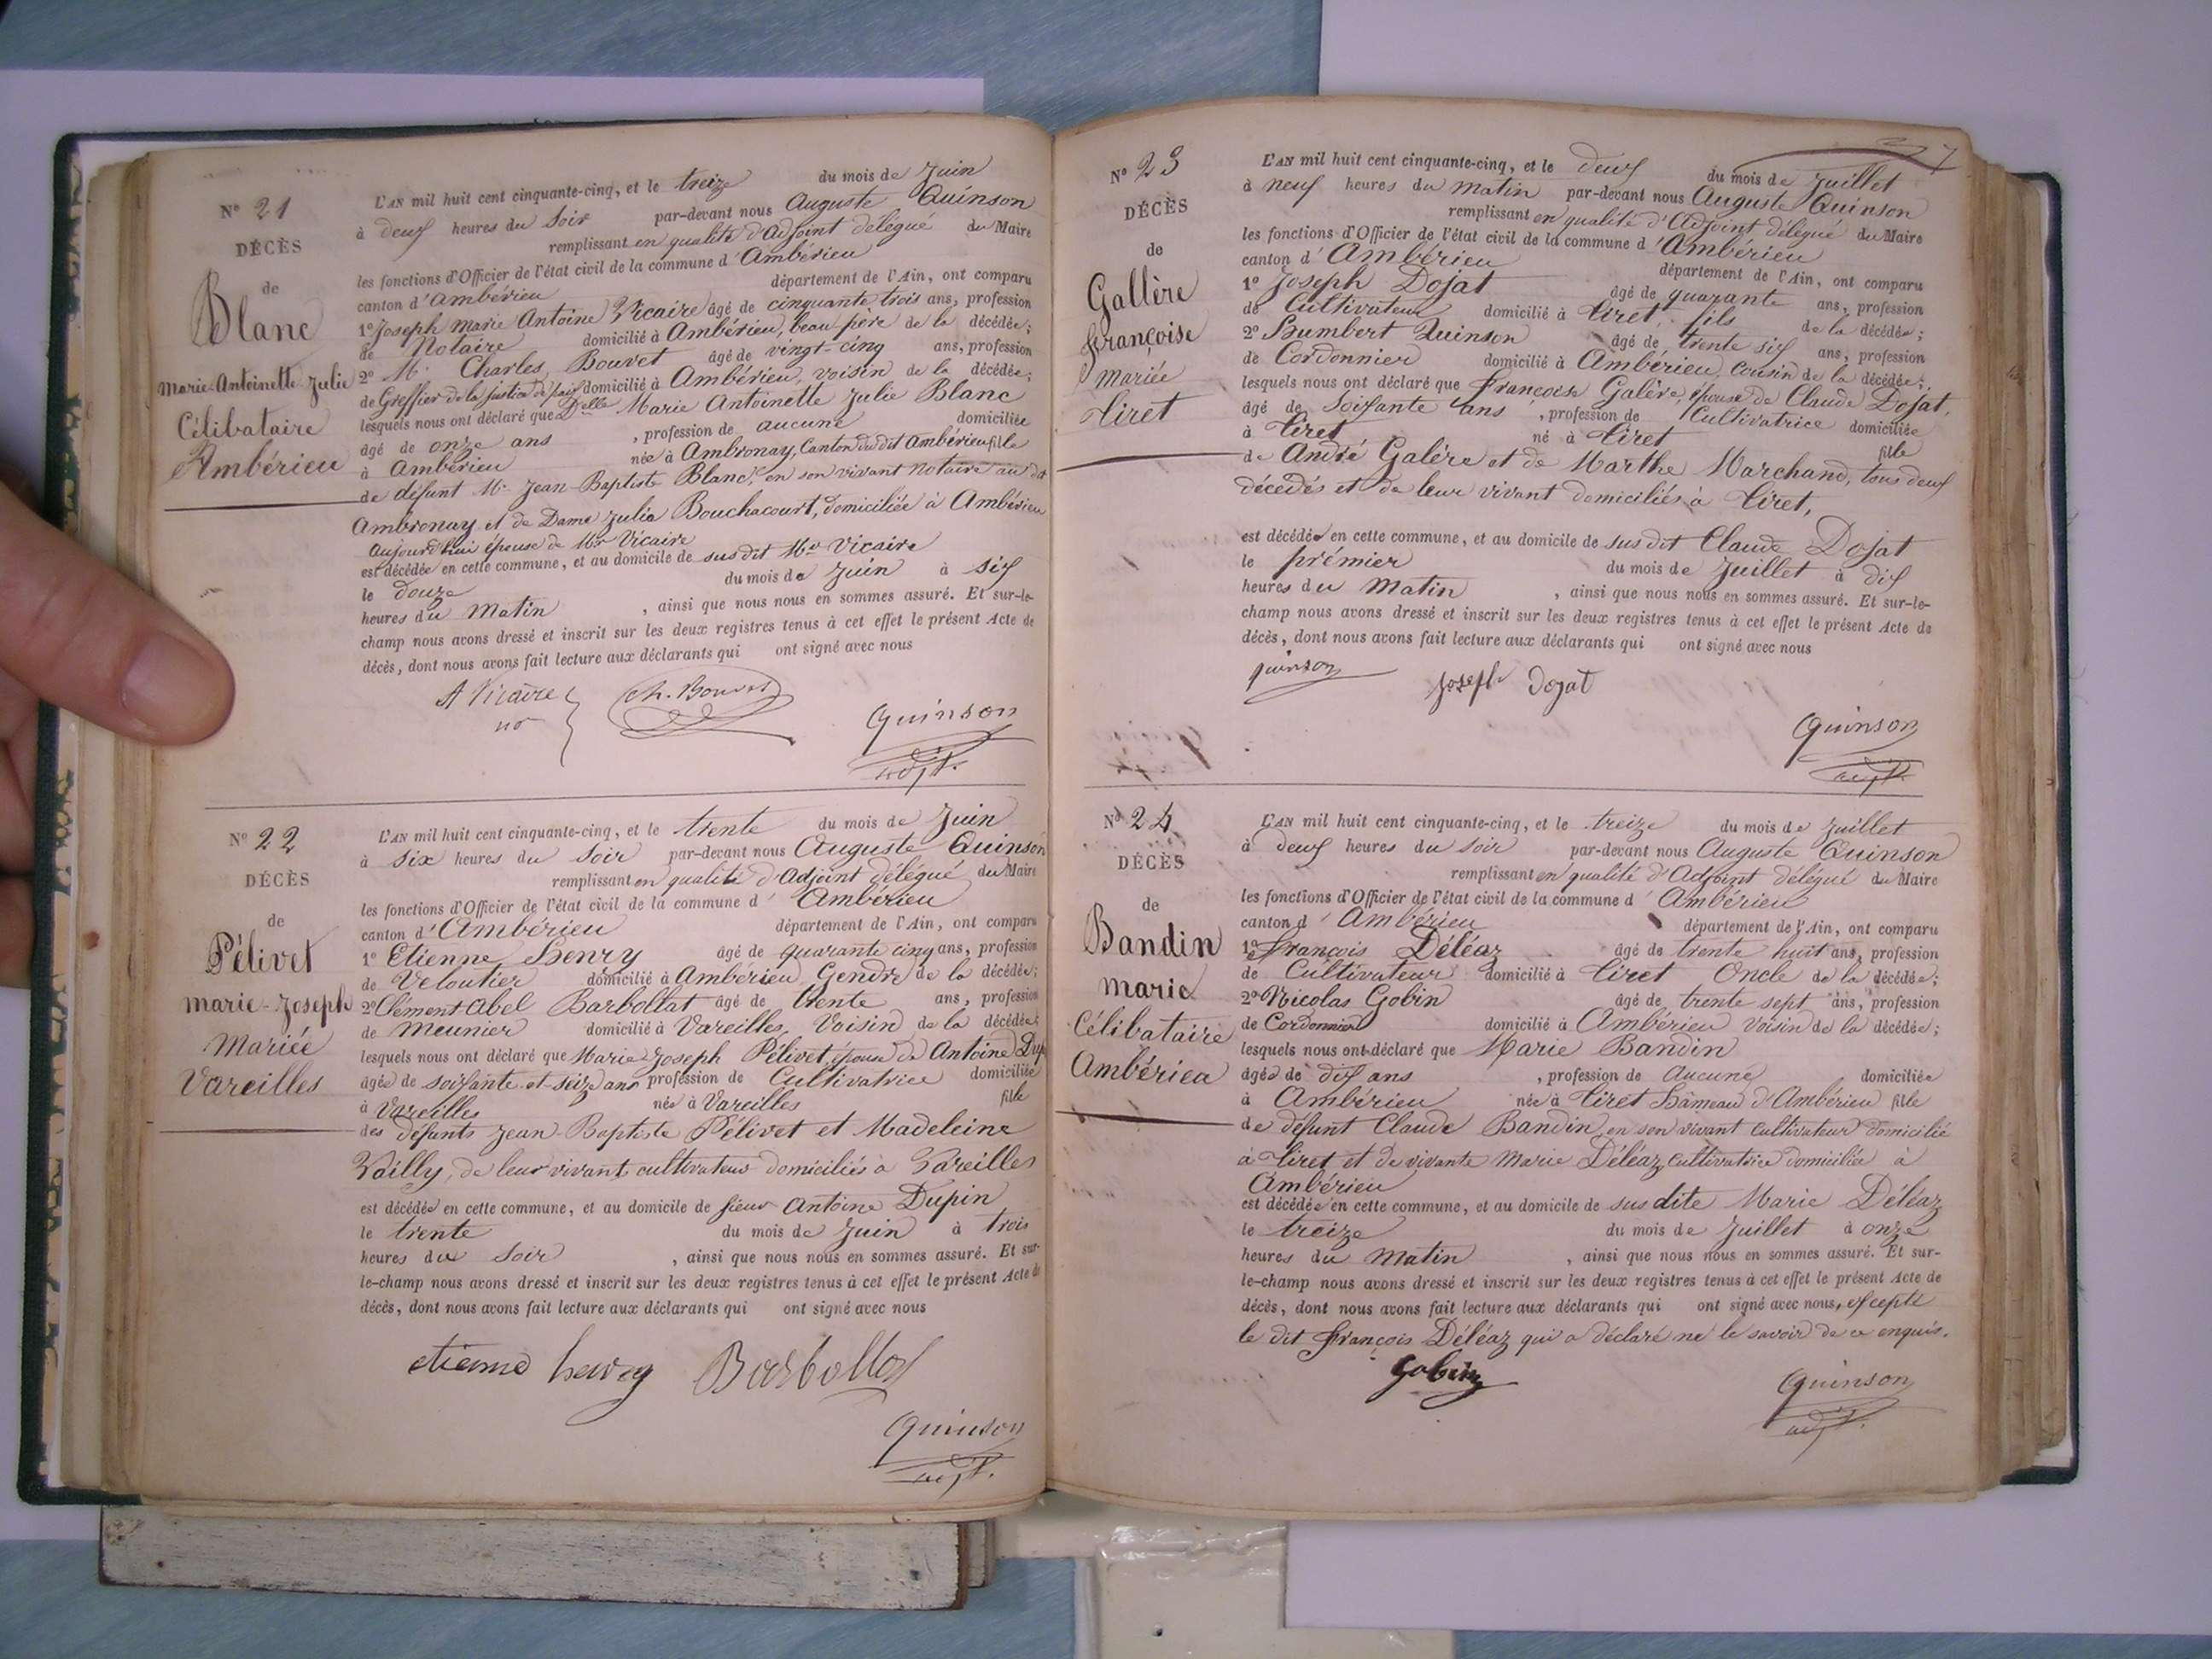 N° 21
DÉCÈS
de
Blanc
Marie-Antoinette-Julie
Célibataire
Ambérieu
L'AN mil huit cent cinquante-cinq, et le treize du mois de Juin
à deux heures du Soir par-devant nous Auguste Quinson
remplissant en qualité d'Adjoint délégué du Maire
les fonctions d'Officier de l'état civil de la commune d'Ambérieu
canton d'Ambérieu département de l'Ain, ont comparu
1° Joseph Marie Antoine Vicaire âgé de cinquante trois ans, profession
de Notaire domicilié à Ambérieu, beau père de la décédée;
2° Mr Charles Bouvet âgé de vingt-cinq ans, profession
de Greffier de la justice de paix domicilié à Ambérieu, voisin de la décédée;
lesquels nous ont déclaré que Delle Marie Antoinette Julie Blanc
âgé de onze ans, profession de aucune domiciliée
à Ambérieu née à Ambronay, Canton du dit Ambérieu fille
de défunt Mr Jean-Baptiste Blanc, en son vivant notaire au dit
Ambronay et de Dame Julie Bouchacourt, domiciliée à Ambérieu
Aujourd'hui épouse de Mr Vicaire
est décédée en cette commune, et au domicile de susdit Mr Vicaire
le douze du mois de Juin à six
heures du Matin, ainsi que nous nous en sommes assuré. Et sur-le-
champ nous avons dressé et inscrit sur les deux registres tenus à cet effet le présent Acte de
décès, dont nous avons fait lecture aux déclarants qui ont signé avec nous
A Vicaire
no
Ch. Bouvet
Quinson
adjt.
N° 22
DÉCÈS
de
Pélivet
marie-Joseph
Mariée
Vareilles
L'AN mil huit cent cinquante-cinq, et le trente du mois de Juin
à six heures du Soir par-devant nous Auguste Quinson
remplissant en qualité d'Adjoint délégué du Maire
les fonctions d'Officier de l'état civil de la commune d'Ambérieu
canton d'Ambérieu département de l'Ain, ont comparu
1° Etienne Henry âgé de quarante cinq ans, profession
de Veloutier domicilié à Ambérieu Gendre de la décédée;
2° Clément Abel Barbollat âgé de trente ans, profession
de Meunier domicilié à Vareilles, Voisin de la décédée;
lesquels nous ont déclaré que Marie Joseph Pélivet, épouse de Antoine Dup
âgée de soixante-et-seize ans profession de Cultivatrice domiciliée
à Vareilles née à Vareilles fille
des défunts Jean-Baptiste Pélivet et Madeleine
Vailly, de leur vivant cultivateurs domiciliés à Vareilles
est décédée en cette commune, et au domicile de sieur Antoine Dupin
le trente du mois de Juin à trois
heures du Soir, ainsi que nous nous en sommes assuré. Et sur-
le-champ nous avons dressé et inscrit sur les deux registres tenus à cet effet le présent Acte de
décès, dont nous avons fait lecture aux déclarants qui ont signé avec nous
etienne henry Barbollat
Quinson
adjt.
7
N° 23
DÉCÈS
de
Gallère
françoise
Mariée
Tiret
L'AN mil huit cent cinquante-cinq, et le deux du mois de Juillet
à neuf heures du matin par-devant nous Auguste Quinson
remplissant en qualité d'Adjoint délégué du Maire
les fonctions d'Officier de l'état civil de la commune d'Ambérieu
canton d'Ambérieu département de l'Ain, ont comparu
1° Joseph Dojat âgé de quarante ans, profession
de Cultivateur domicilié à Tiret, fils de la décédée;
2° Humbert Quinson âgé de trente six ans, profession
de Cordonnier domicilié à Ambérieu, Cousin de la décédée;
lesquels nous ont déclaré que Françoise Galère, épouse de Claude Dojat,
âgé de Soixante ans, profession de Cultivatrice domiciliée
à Tiret né à Tiret fille
de André Galère et de Marthe Marchand, tous deux
décédés et de leur vivant domiciliés à Tiret,
est décédée en cette commune, et au domicile de susdit Claude Dojat
le prémier du mois de Juillet à dix
heures du Matin, ainsi que nous nous en sommes assuré. Et sur-le-
champ nous avons dressé et inscrit sur les deux registres tenus à cet effet le présent Acte de
décès, dont nous avons fait lecture aux déclarants qui ont signé avec nous
quinson joseph dojat
Quinson
adjt.
N° 24
DÉCÈS
de
Bandin
marie
Célibataire
Ambérieu
L'AN mil huit cent cinquante-cinq, et le treize du mois de Juillet
à deux heures du soir par-devant nous Auguste Quinson
remplissant en qualité d'Adjoint délégué du Maire
les fonctions d'Officier de l'état civil de la commune d'Ambérieu
canton d'Ambérieu département de l'Ain, ont comparu
1° François Déléaz âgé de trente huit ans, profession
de Cultivateur domicilié à Tiret Oncle de la décédée;
2° Nicolas Gobin âgé de trente sept ans, profession
de Cordonnier domicilié à Ambérieu voisin de la décédée;
lesquels nous ont déclaré que Marie Bandin
âgée de dix ans, profession de Aucune domiciliée
à Ambérieu née à Tiret Hameau d'Ambérieu fille
de défunt Claude Bandin en son vivant cultivateur domicilié
à Tiret et de vivante Marie Déléaz, cultivatrice domiciliée à
Ambérieu
est décédée en cette commune, et au domicile de susdite Marie Déléaz
le treize du mois de Juillet à onze
heures du Matin, ainsi que nous nous en sommes assuré. Et sur-
le-champ nous avons dressé et inscrit sur les deux registres tenus à cet effet le présent Acte de
décès, dont nous avons fait lecture aux déclarants qui ont signé avec nous, excepté
le dit François Déléaz qui a déclaré ne le savoir de ce enquis.
Gobin
Quinson
adjt.